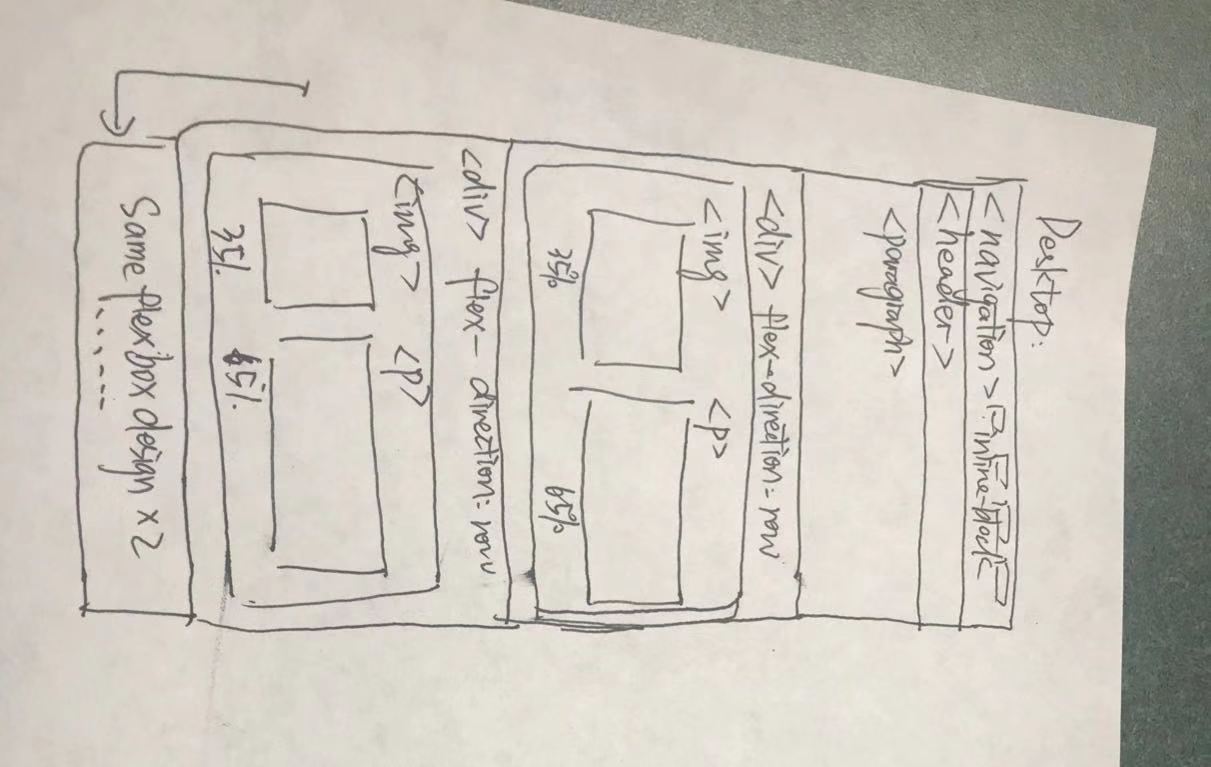 Desktop:
<navigation> inline-block
<header>
<paragraph>
<div> flex-direction: row
<img> <p>
35% 65%
<div> flex-direction: row
<img> <p>
35%. 65%.
Same flexbox design x 2
......